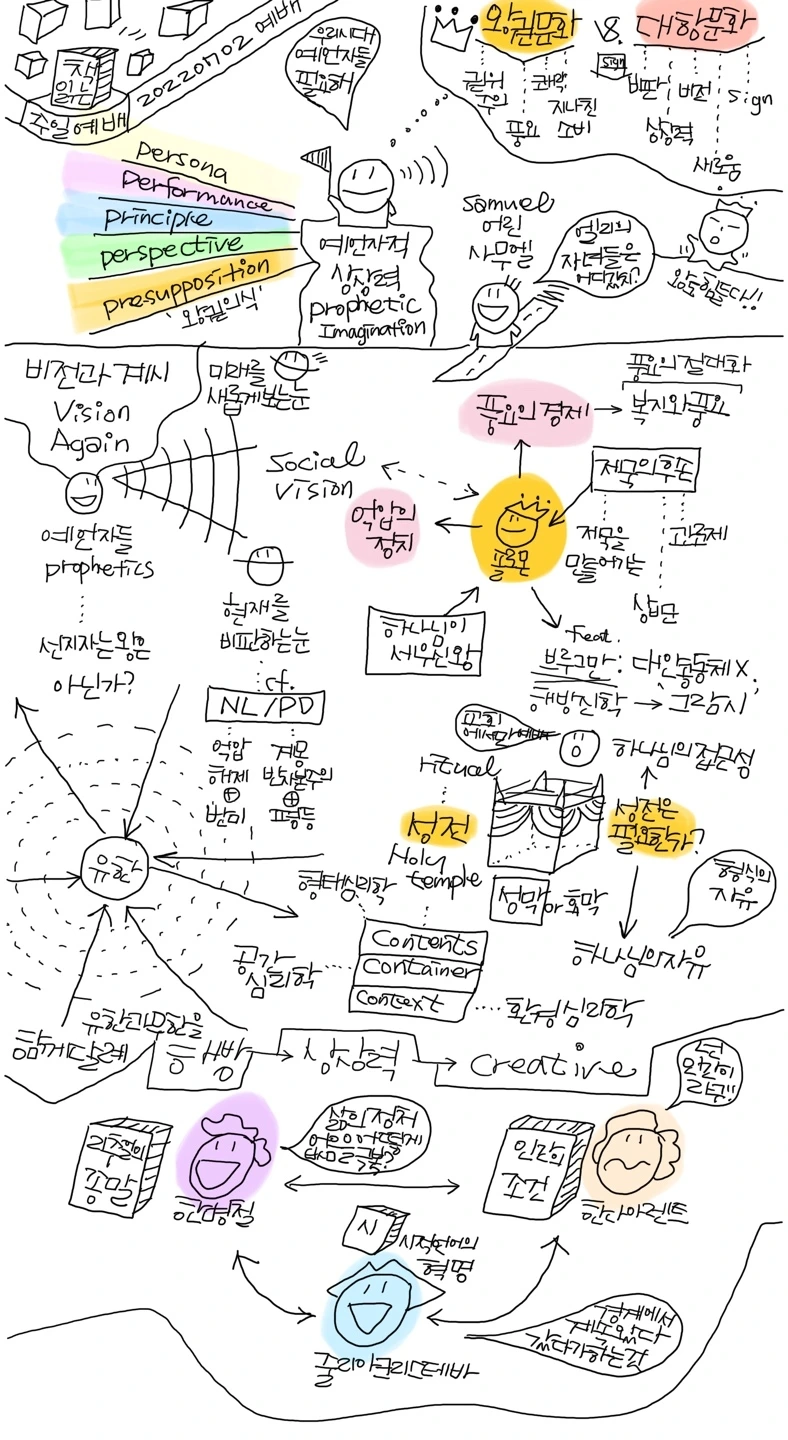 책
읽는
주일예배
20220702 예배
우리시대
예언자들
필요해
왕권문화 VS. 대항문화
sign
권위
주의
풍요
쾌락
지나친
소비
비판
상상력
비전
새로움
sign
persona
performance
principle
perspective
presupposition
'왕권의식'
예언자적
상상력
prophetic
Imagination
Samuel
어린
사무엘
엘리의
자녀들은
어디갔지?
왕도힘들다!!
비전과 계시
Vision
Again
미래를
새롭게보는눈
Social
vision
예언자들
prophetics
선지자는왕은
아닌가?
현재를
비판하는눈
cf.
NL/PD
억압
해제
⊕
반미
계몽
반자본주의
⊕
평등
풍요의 경제
풍요의절대화
복지와풍요
억압의
정치
솔로몬
제국의후손
제국을
만들어가는
상비군
하나님이
세우신왕
feat.
브루그만: 대안공동체X,
해방신학 → 그람시
교회
에서만예배
하나님의접근성
ritual
성전
Holy
temple
성막 or 흑막
성전은
필요한가?
형식의
자유
하나님의자유
형태심리학
공간
심리학
Contents
Container
Context
환경심리학
유한
유한과무한을
함께달래
해방
상상력
creative
종말
한병철
삶의 정처
인간의
조건
한나아렌트
시
시적언어의
혁명
줄리아크리스테바
경계에서
계속왔다
갔다가하는것